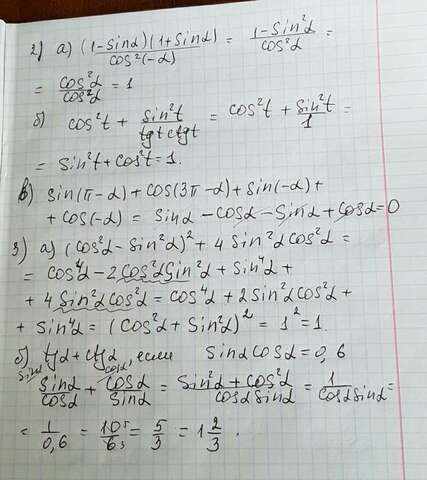 2) а) (1-sinα)(1+sinα)/cos²(-α) = 1-sin²α/cos²α =
= cos²α/cos²α = 1
б) cos²t + sin²t/tgt ctgt = cos²t + sin²t/1 =
= sin²t + cos²t = 1.
в) sin(π-α) + cos(3π-α) + sin(-α) +
+ cos(-α) = sinα - cosα - sinα + cosα = 0
3) а) (cos²α - sin²α)² + 4 sin²α cos²α =
= cos⁴α - 2cos²α sin²α + sin⁴α +
+ 4 sin²α cos²α = cos⁴α + 2sin²α cos²α +
+ sin⁴α = (cos²α + sin²α)² = 1² = 1.
б) tgα + ctgα, если sinα cosα = 0,6
sinα/cosα + cosα/sinα = sin²α + cos²α/cosα sinα = 1/cosα sinα =
= 1/0,6 = 10/6 = 5/3 = 1 2/3.